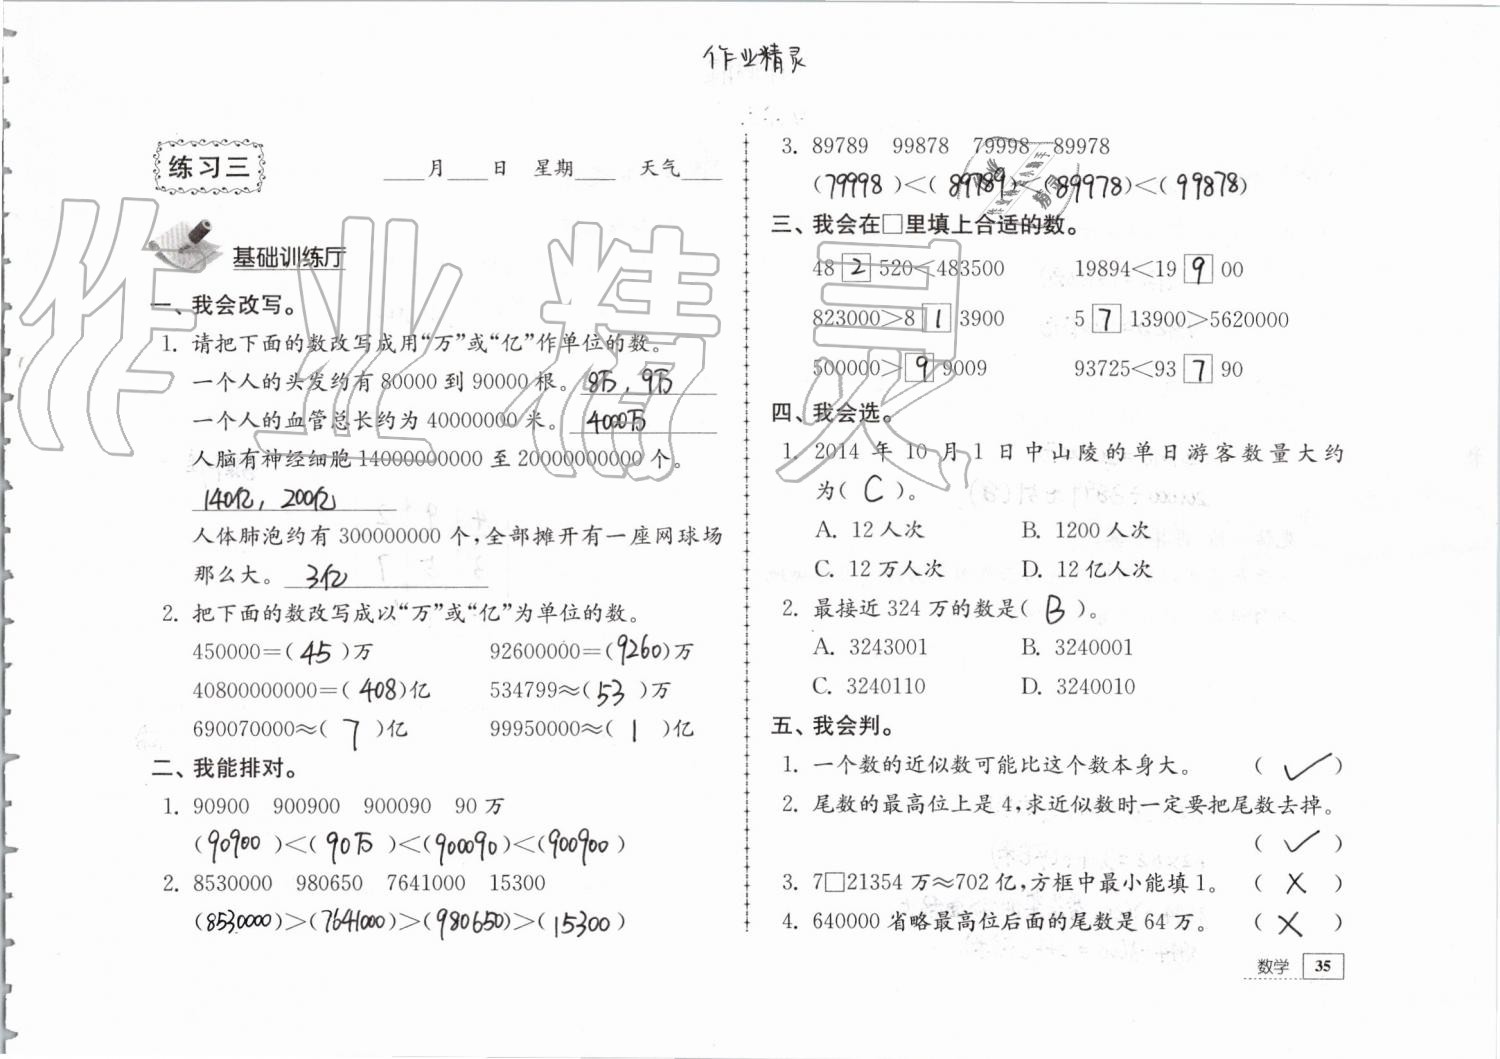 作业精灵
练习三
____月____日 星期____ 天气____
基础训练厅
一、我会改写。
1. 请把下面的数改写成用“万”或“亿”作单位的数。
一个人的头发约有 80000 到 90000 根。 8万,9万
一个人的血管总长约为 40000000 米。 4000万
人脑有神经细胞 14000000000 至 20000000000 个。
140亿,200亿
人体肺泡约有 300000000 个,全部摊开有一座网球场
那么大。 3亿
2. 把下面的数改写成以“万”或“亿”为单位的数。
450000=( 45 )万 92600000=(9260)万
40800000000=( 408)亿 534799≈(53 )万
690070000≈( 7 )亿 99950000≈( 1 )亿
二、我能排对。
1. 90900 900900 900090 90 万
(90900 )<( 90万 )<(900090)<(900900 )
2. 8530000 980650 7641000 15300
(8530000)>(7641000)>(980650)>(15300 )
3. 89789 99878 79998 89978
(79998 )<( 89789)<(89978)<(99878)
三、我会在□里填上合适的数。
48 2 520<483500 19894<19 9 00
823000>8 1 3900 5 7 13900>5620000
500000> 9 9009 93725<93 7 90
四、我会选。
1. 2014 年 10 月 1 日中山陵的单日游客数量大约
为( C )。
A. 12 人次 B. 1200 人次
C. 12 万人次 D. 12 亿人次
2. 最接近 324 万的数是( B )。
A. 3243001 B. 3240001
C. 3240110 D. 3240010
五、我会判。
1. 一个数的近似数可能比这个数本身大。 ( ✓ )
2. 尾数的最高位上是 4,求近似数时一定要把尾数去掉。
( ✓ )
3. 7□21354 万≈702 亿,方框中最小能填 1。 ( × )
4. 640000 省略最高位后面的尾数是 64 万。 ( × )
数学 35
作业精灵